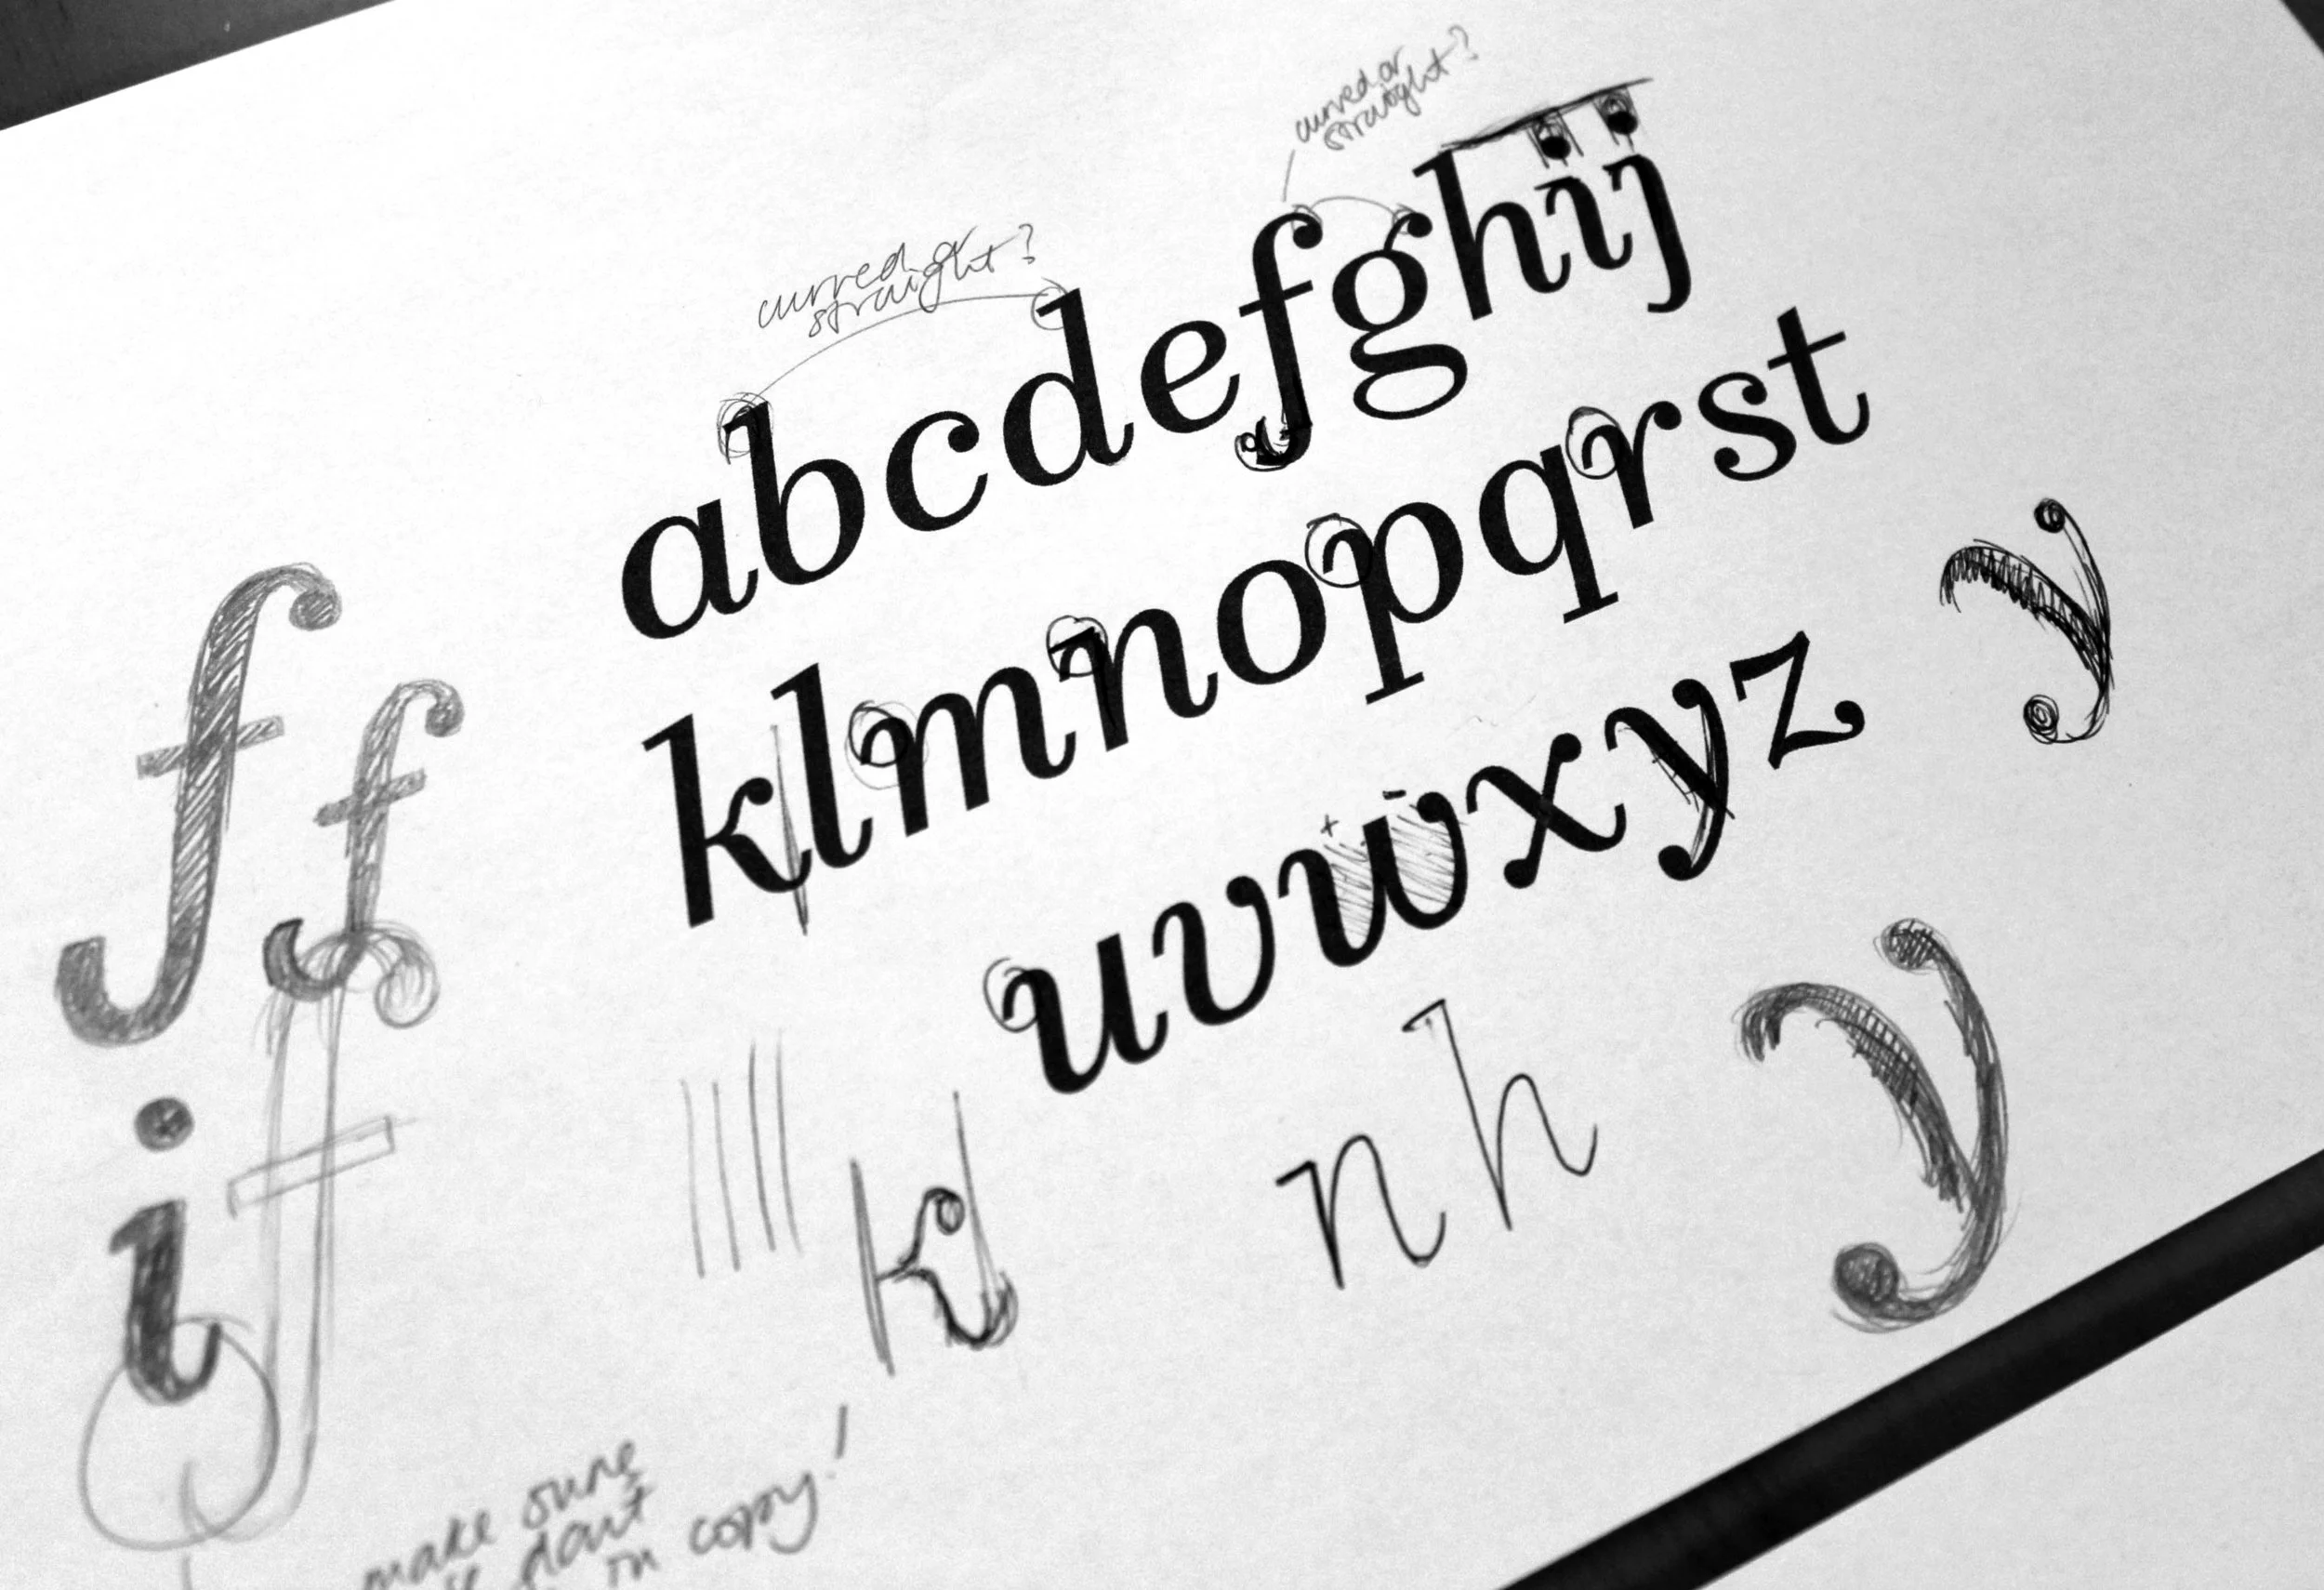 curved or
straight?
curved or
straight?
abcdefghij
klmnopqrst
uvwxyz
y
f f
i f
k
n h
y
make sure
dont
in copy!